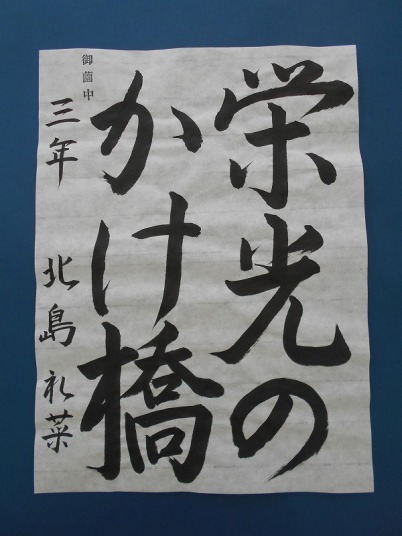 栄光の
かけ橋
御薗中
三年 北島 礼菜